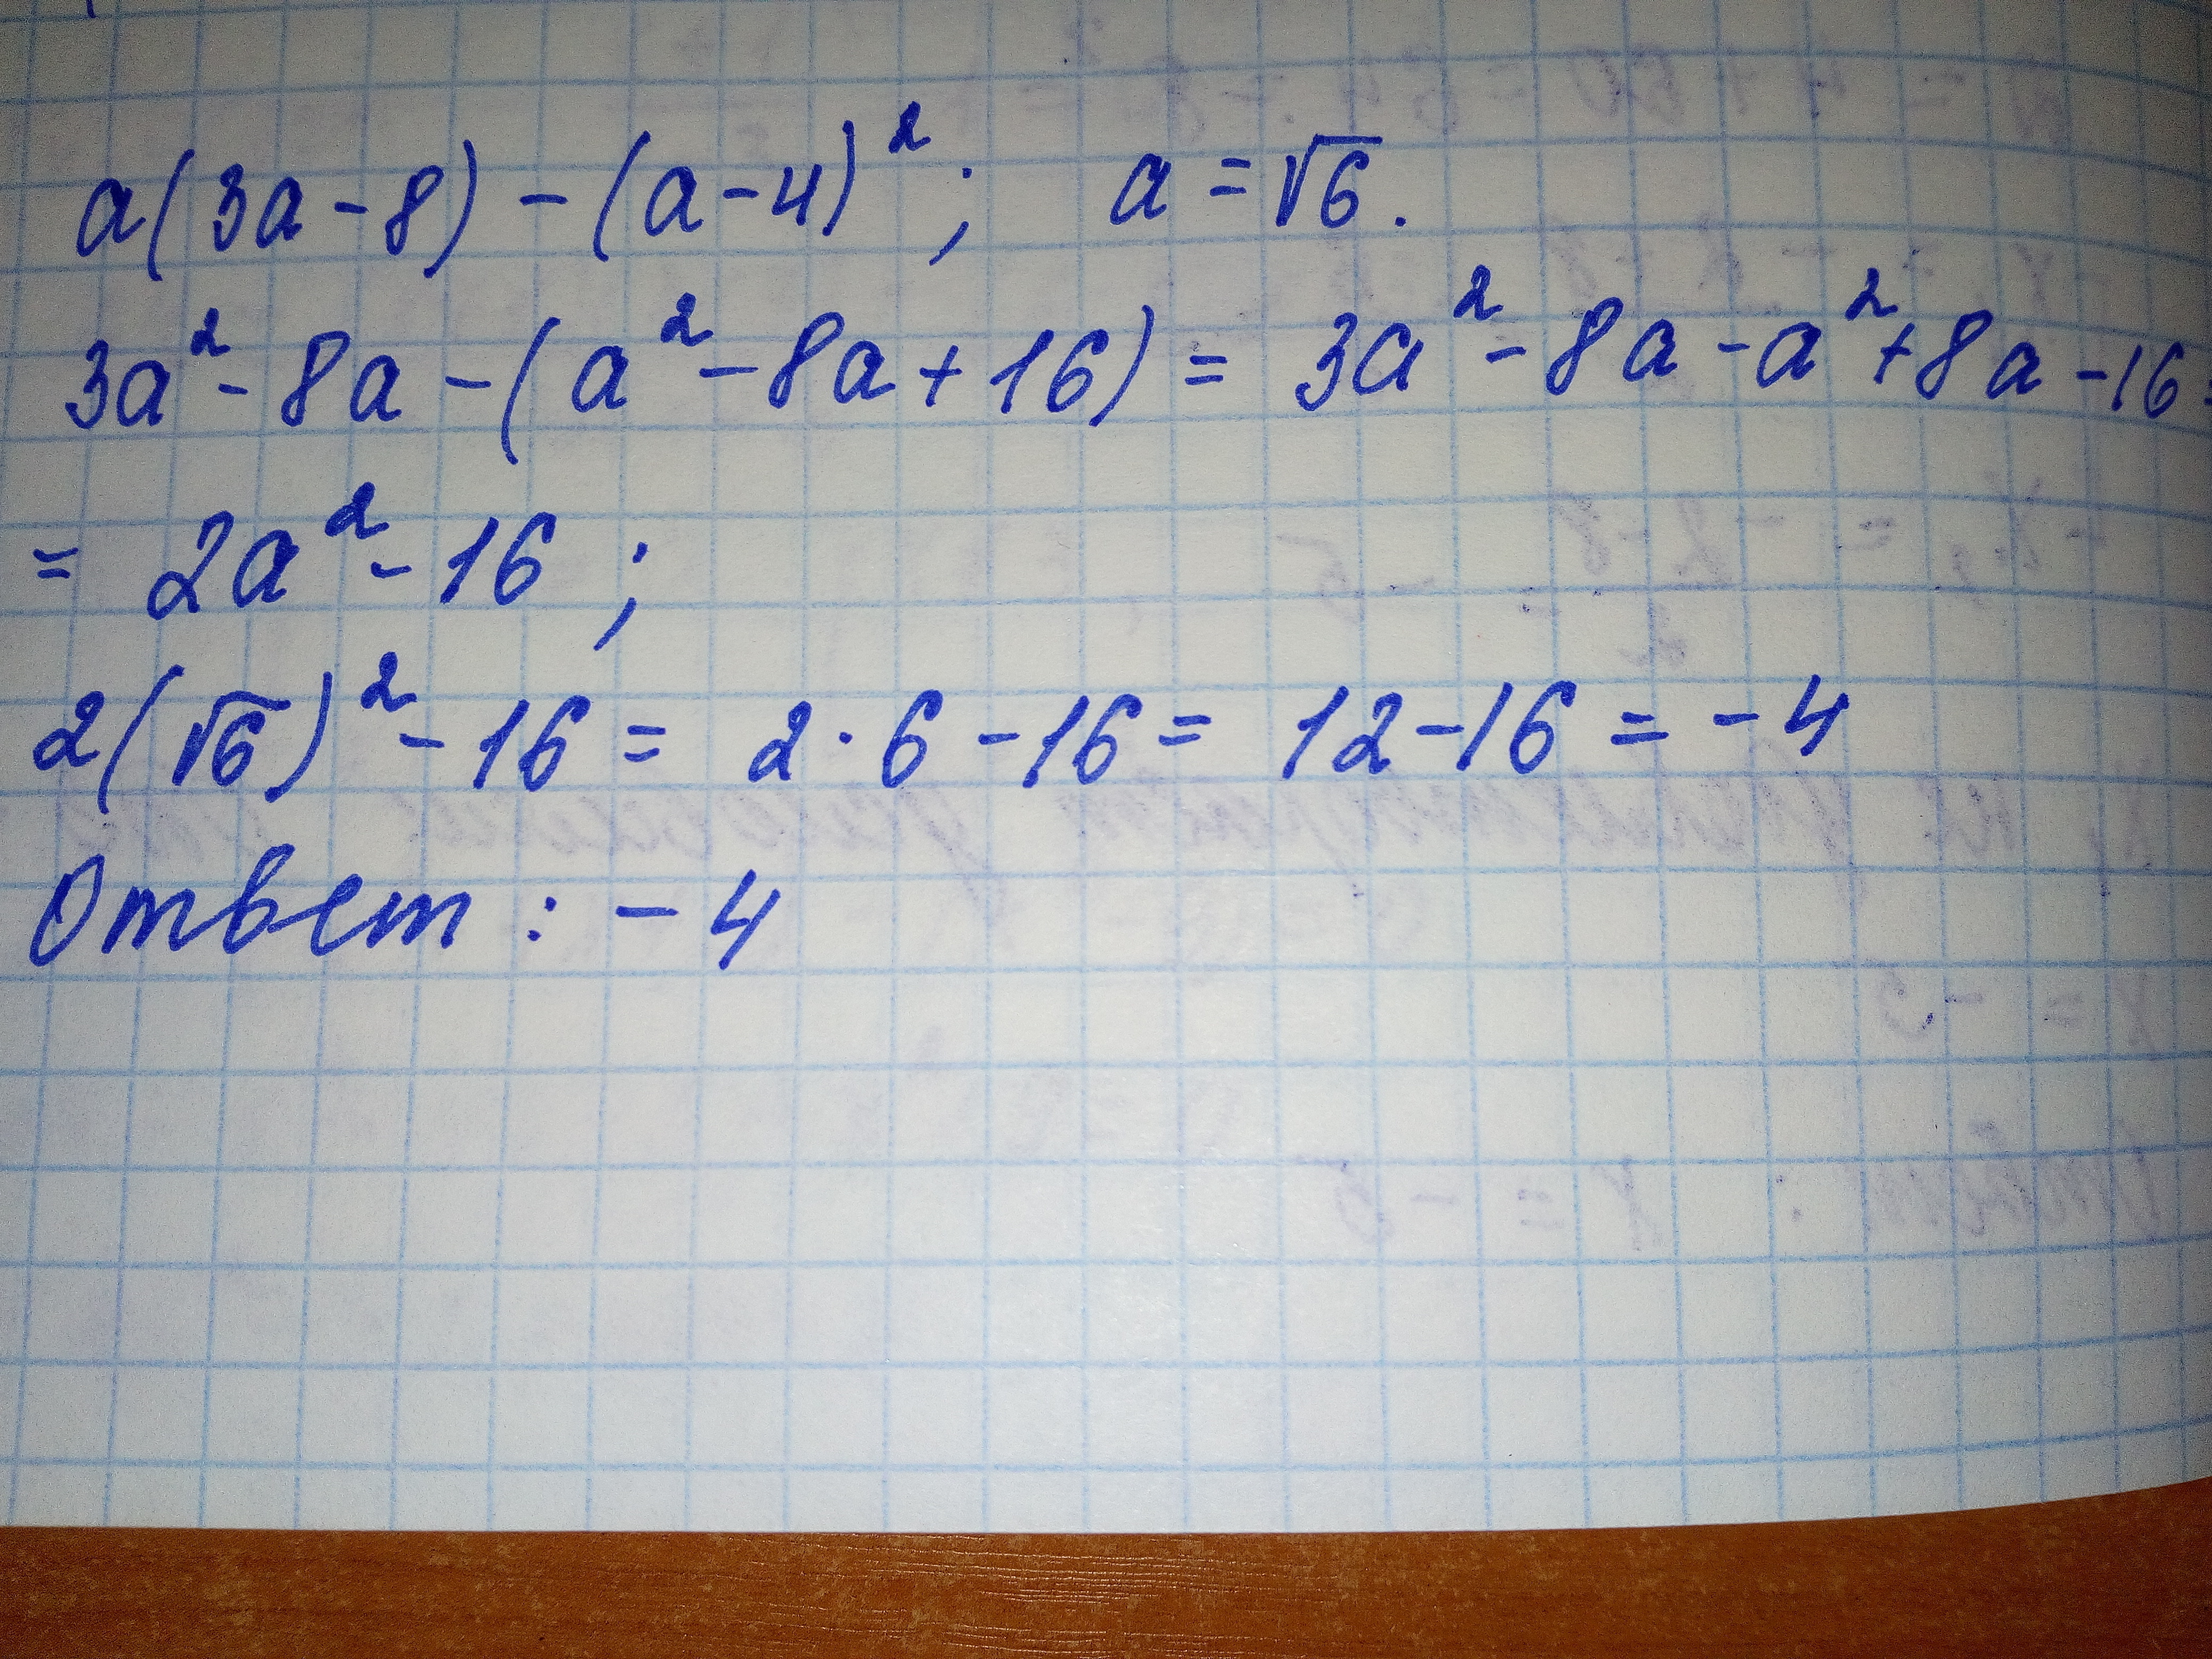 a(3a-8)-(a-4)²; a=√6.
3a²-8a-(a²-8a+16)=3a²-8a-a²+8a-16=
=2a²-16;
2(√6)²-16=2·6-16=12-16=-4
Ответ: -4